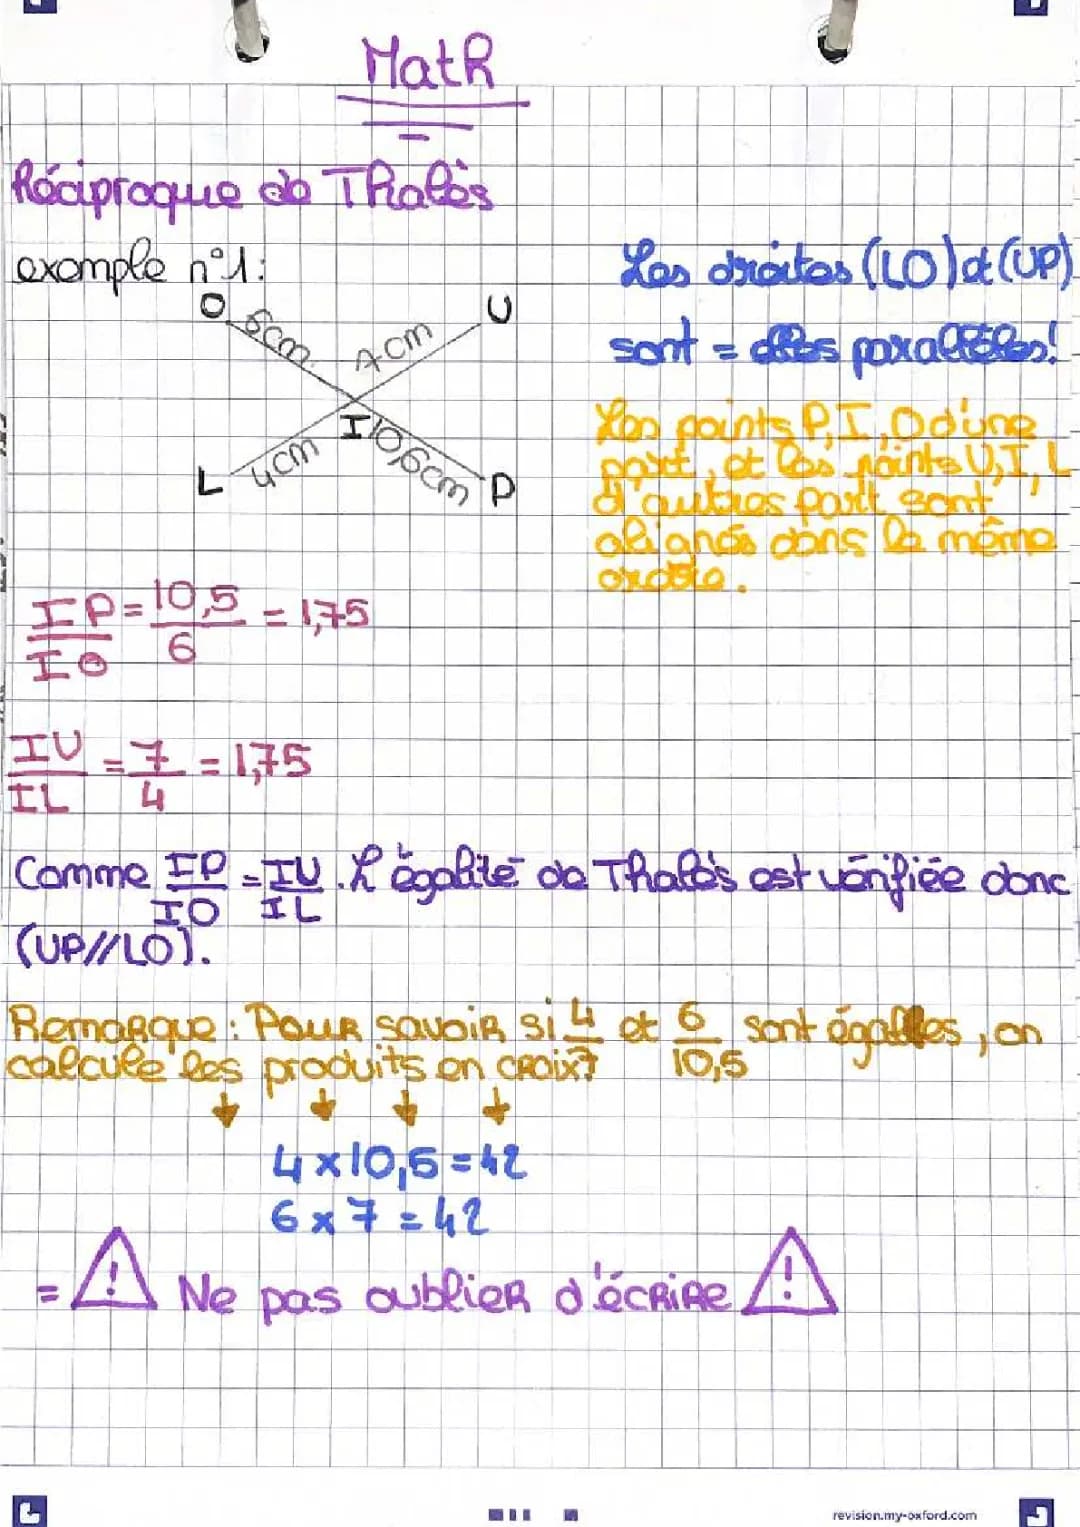 Math
Réciproque de Thalès
exemple n°1:
O
6cm
7cm
U
I
L
4cm
10,6cm
P
Les droites (LO) et (UP)
sont = elles parallèles!
Les points P, I, O d'une
part, et les points U, I, L
d'autres part sont
alignés dans le même
ordre.
IP/IO = 10,5/6 = 1,75
IU/IL = 7/4 = 1,75
Comme IP/IO = IU/IL. L'égalité de Thalès est vérifiée donc
(UP//LO).
Remarque : Pour savoir si 4/7 et 6/10,5 sont égalles, on
calcule les produits en croix
4 x 10,5 = 42
6 x 7 = 42
= ! Ne pas oublier d'écrire !
revision.my-oxford.com